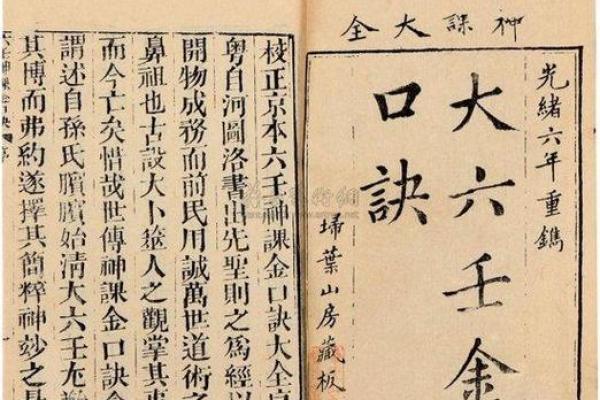 神課大全
光緒六年重鐫
大六壬金
口訣
掃葉山房藏板
校正京本六壬神課金口訣大全
粵自河圖洛書出先聖則之爲經以
開物成務而前民用誠萬世道術之
鼻祖也古設大卜筮人之觀掌其事
而今亡矣惜哉世傳神課金口訣
謂述自孫氏臏臏始清大六壬尤
其博而弗約遂擇其簡粹神妙之